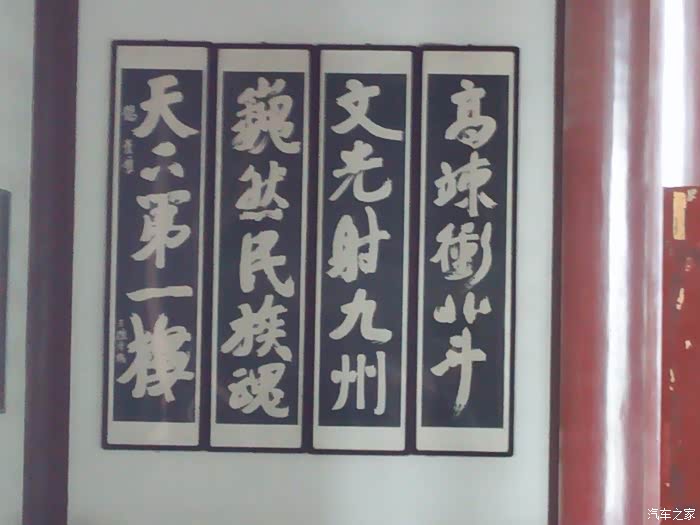 高竦衝北斗
文光射九州
巍然民族魂
天下第一樓
汽车之家